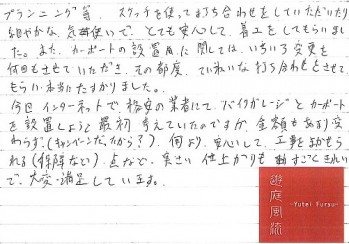 プランニング等、スケッチを使って打ち合わせをしていただいたり
細やかな気遣いで、とても安心して、着工をしてもらいまし
た。また、カーポートの設置に関しては、いろいろ変更を
何回もさせていただき、その都度、ていねいな打ち合わせをさせて
もらい本当にたすかりました。
今回インターネットで、格安の業者にて、バイクガレージとカーポート
を設置しようと最初考えていたのですが、金額もあまり変
わらず、(キャンペーンだったから??)何より、安心して、工事をまかせら
れる(保障など)点など、実さい仕上がりもすごくきれい
で、大変満足しています。
遊庭風流
-Yutei Furyu-